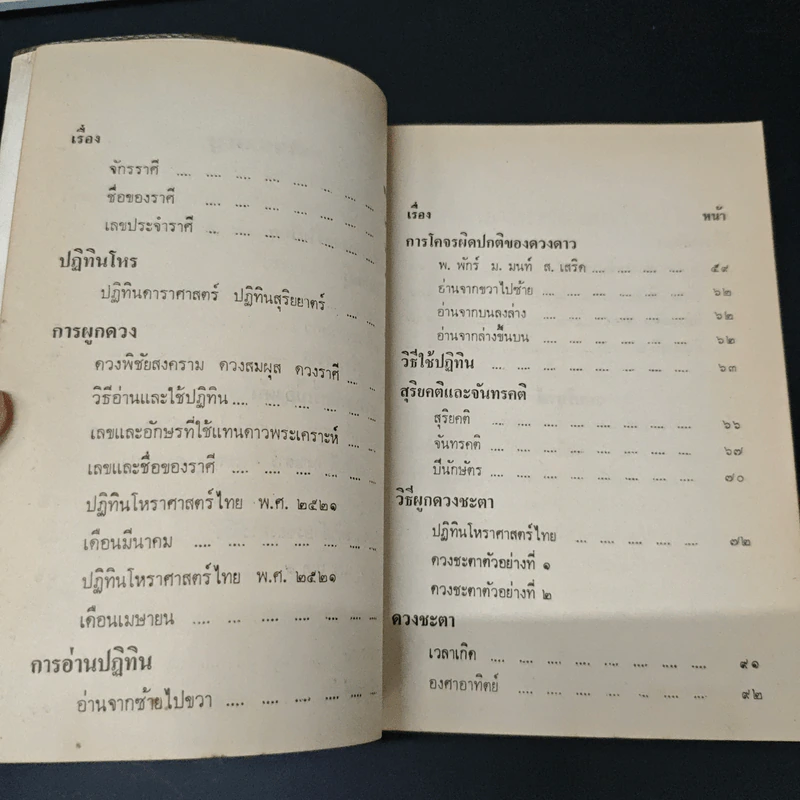 เรื่อง
จักรราศี .... .... .... .... .... .... ....
ชื่อของราศี .... .... .... .... .... ....
เลขประจำราศี .... .... .... .... .... ....
ปฏิทินโหร
ปฏิทินดาราศาสตร์ ปฏิทินสุริยยาตร์ .... ....
การผูกดวง
ดวงพิชัยสงคราม ดวงสมผุส ดวงราศี ....
วิธีอ่านและใช้ปฏิทิน .... .... .... .... ....
เลขและอักษรที่ใช้แทนดาวพระเคราะห์ ....
เลขและชื่อของราศี .... .... .... .... ....
ปฏิทินโหราศาสตร์ไทย พ.ศ. ๒๕๒๑
เดือนมีนาคม .... .... .... .... .... ....
ปฏิทินโหราศาสตร์ไทย พ.ศ. ๒๕๒๑
เดือนเมษายน .... .... .... .... .... ....
การอ่านปฏิทิน
อ่านจากซ้ายไปขวา .... .... .... .... ....
เรื่อง หน้า
การโคจรผิดปกติของดวงดาว
พ. พักร์ ม. มนท์ ส. เสริด .... .... .... .... ๕๙
อ่านจากขวาไปซ้าย .... .... .... .... .... .... ๖๒
อ่านจากบนลงล่าง .... .... .... .... .... .... ๖๒
อ่านจากล่างขึ้นบน .... .... .... .... .... .... ๖๒
วิธีใช้ปฏิทิน .... .... .... .... .... .... .... ๖๓
สุริยคติและจันทรคติ
สุริยคติ .... .... .... .... .... .... .... ๖๖
จันทรคติ .... .... .... .... .... .... .... ๖๗
ปีนักษัตร .... .... .... .... .... .... .... ๗๐
วิธีผูกดวงชะตา
ปฏิทินโหราศาสตร์ไทย .... .... .... .... .... ๗๒
ดวงชะตาตัวอย่างที่ ๑
ดวงชะตาตัวอย่างที่ ๒
ดวงชะตา
เวลาเกิด .... .... .... .... .... .... .... .... ๙๑
องศาอาทิตย์ .... .... .... .... .... .... .... ๙๒